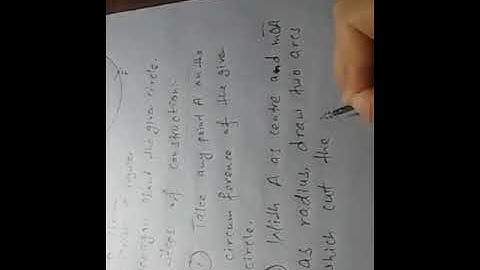 about the given circle.
steps of construction:
Take any point A on the
circumference of the given
circle.
With A as centre and mOA
as radius, draw two arcs
which cut the